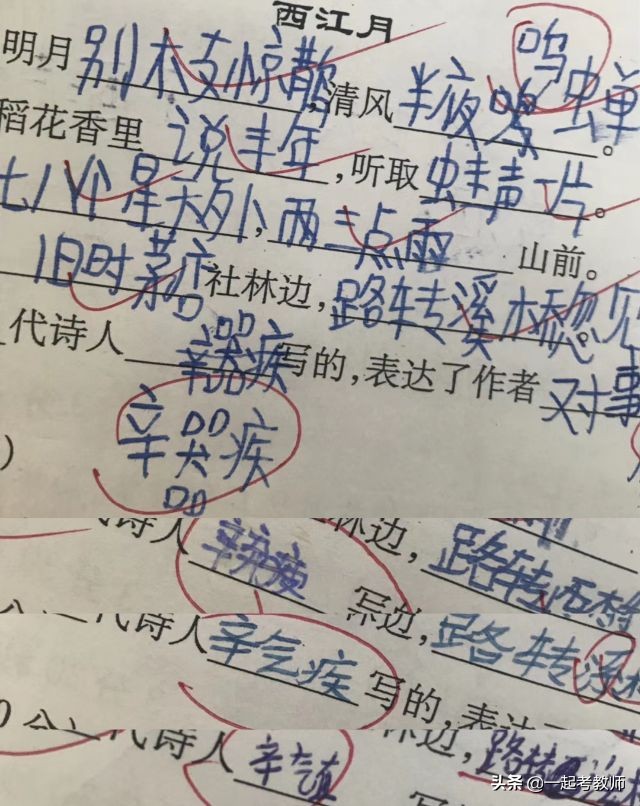 西江月
明月别木支惊散,清风半夜鸣虫单。
鸣
稻花香里说丰年,听取虫丰声一片。
七八个星天外,两三点雨山前。
旧时茅店社林边,路转溪木桥忽见
代诗人辛器疾写的,表达了作者对事
辛器疾
)
代诗人 林边,路转
代诗人辛气疾写的,路转溪
边,表
0分 代诗人辛 林边,路转
写的
头条 @一起考教师